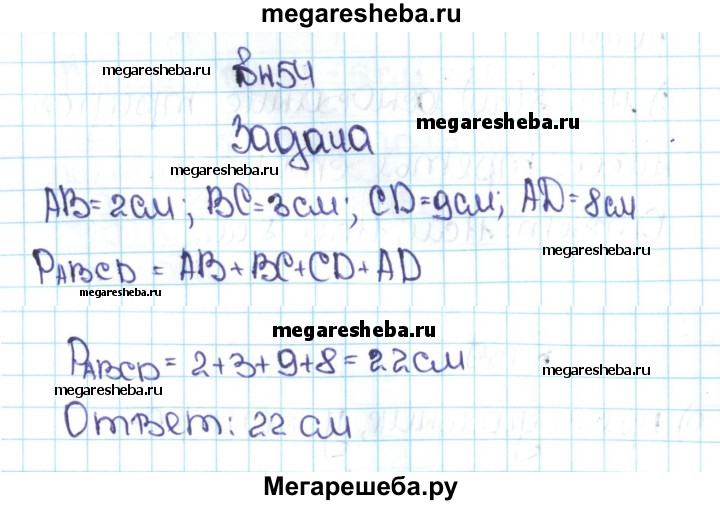 megaresheba.ru
megaresheba.ru
Вн54
Задача
megaresheba.ru
megaresheba.ru
AB=2см; BC=3см; CD=9см; AD=8см
megaresheba.ru
PABCD = AB+BC+CD+AD
megaresheba.ru
megaresheba.ru
PABCD=2+3+9+8=22см
megaresheba.ru
megaresheba.ru
Ответ: 22 см
megaresheba.ru
Мегарешеба.ру